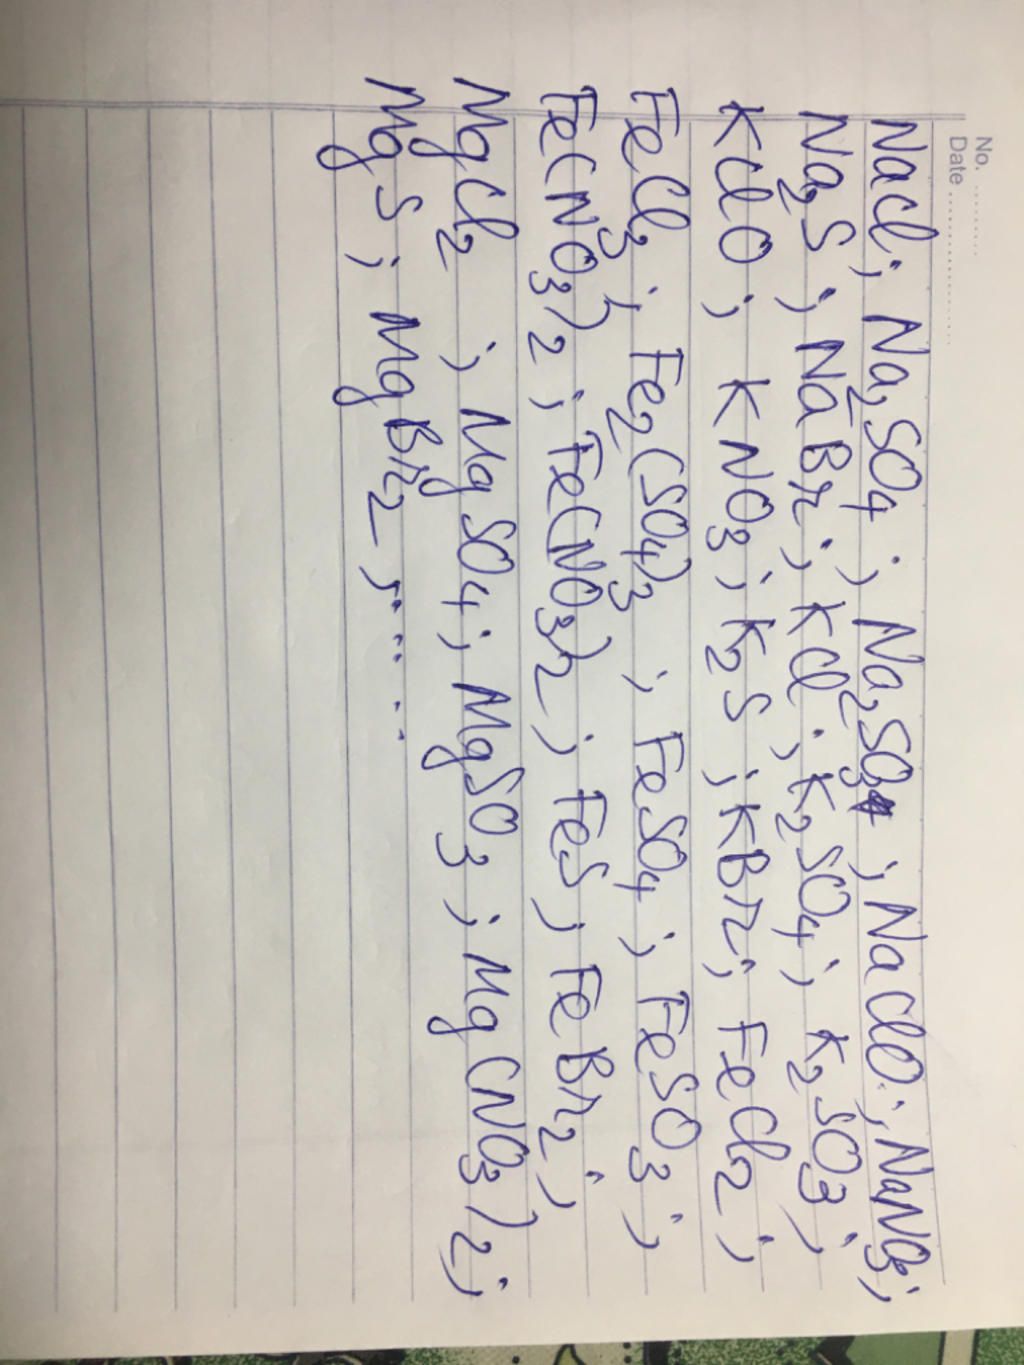 No. ..........
Date ......................
NaCl; Na₂SO₄; Na₂SO₃; NaClO; NaNO₃;
Na₂S; NaBr; KCl; K₂SO₄; K₂SO₃;
KClO; KNO₃; K₂S; KBr; FeCl₂;
FeCl₃; Fe₂(SO₄)₃; FeSO₄; FeSO₃;
Fe(NO₃)₂; Fe(NO₃)₂; FeS; FeBr₂;
MgCl₂; MgSO₄; MgSO₃; Mg(NO₃)₂;
MgS; MgBr₂, .....